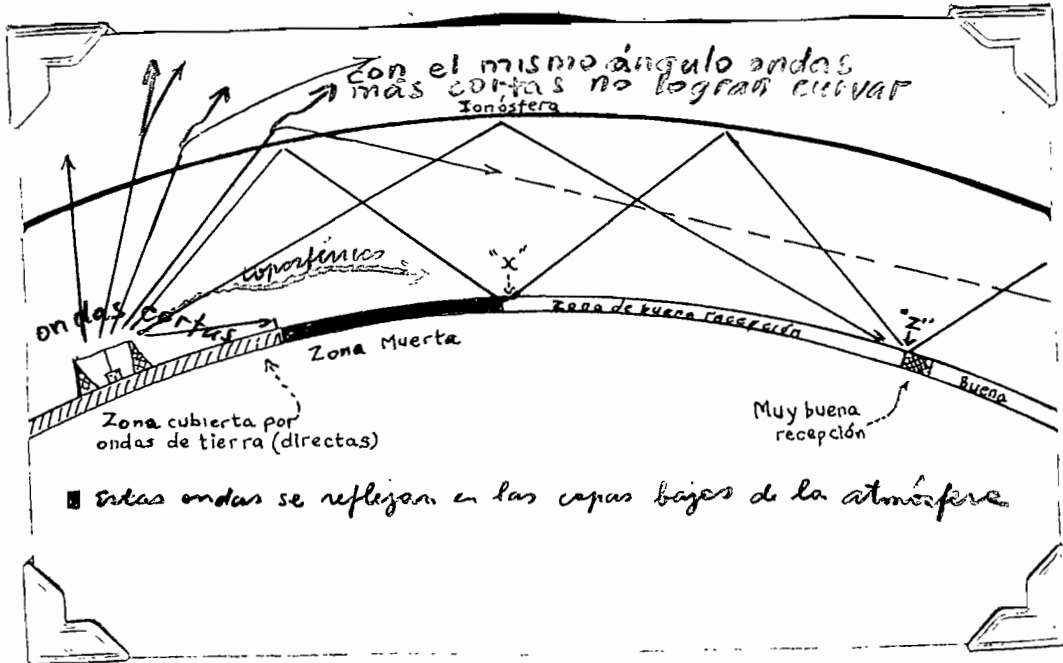 con el mismo ángulo ondas
más cortas no logran curvar
Ionósfera
"X"
ondas cortas
Zona de buena recepción
"Z"
Zona Muerta
Buena
Zona cubierta por
ondas de tierra (directas)
Muy buena
recepción
Estas ondas se reflejan en las capas bajas de la atmósfera